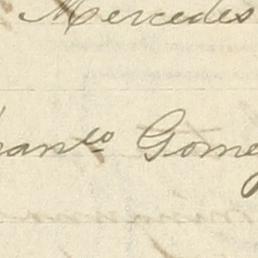 Mercedes
han.co Gome